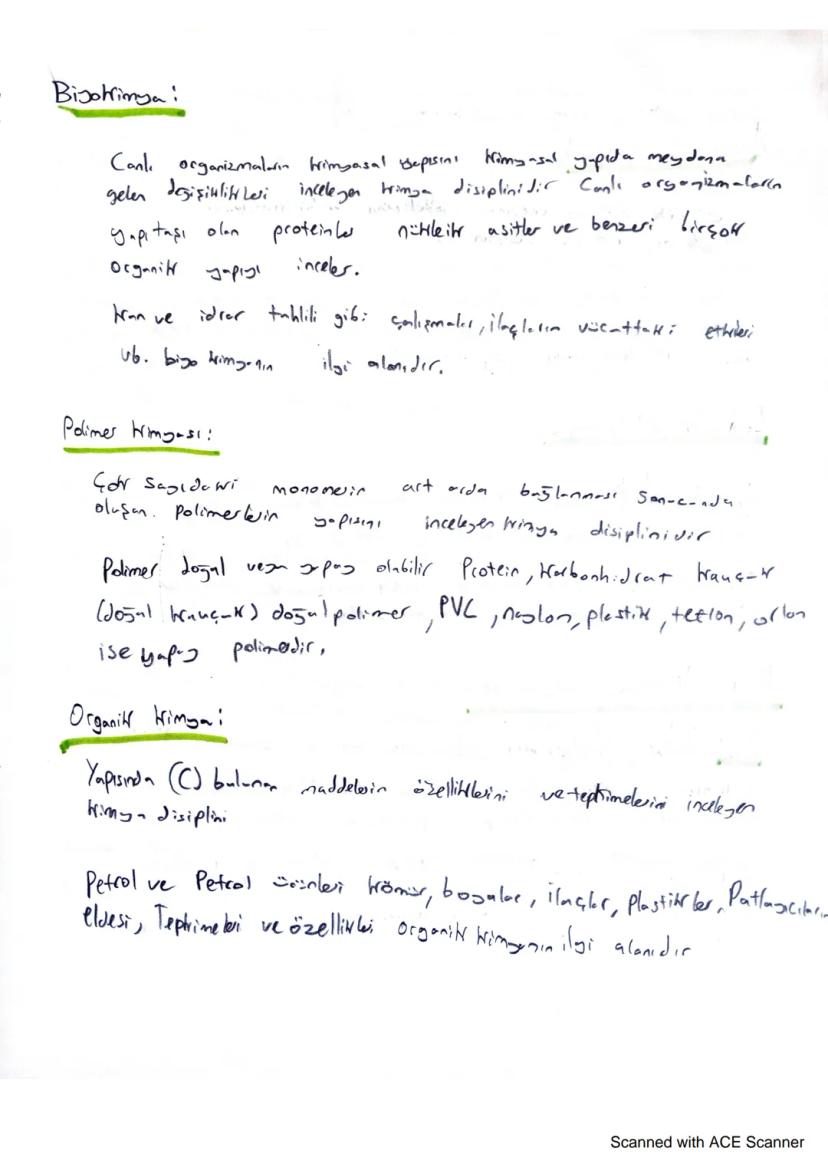 Biyokimya:
Canlı organizmaların kimyasal yapısını kimyasal yapıda meydana
gelen değişiklikleri inceleyen kimya disiplinidir Canlı organizmaların
yapıtaşı olan proteinler nükleik asitler ve benzeri birçok
organik yapıyı inceler.
Kan ve idrar tahlili gibi çalışmalar, ilaçların vücuttaki etkileri
vb. biyo kimyanın ilgi alanıdır.
Polimer kimyası:
Çok sayıdaki monomerin art arda bağlanması sonucunda
oluşan polimerlerin yapısını inceleyen kimya disiplinidir
Polimer doğal veya yapay olabilir Protein, Karbonhidrat kauçuk
(doğal kauçuk) doğal polimer, PVC, naylon, plastik, teflon, orlon
ise yapay polimerdir.
Organik kimya:
Yapısında (C) bulunan maddelerin özelliklerini ve tepkimelerini inceleyen
kimya disiplini
Petrol ve Petrol ürünleri kömür, boyalar, ilaçlar, plastikler, Patlayıcıların
eldesi, Tepkimeleri ve özellikleri organik kimyanın ilgi alanıdır
Scanned with ACE Scanner